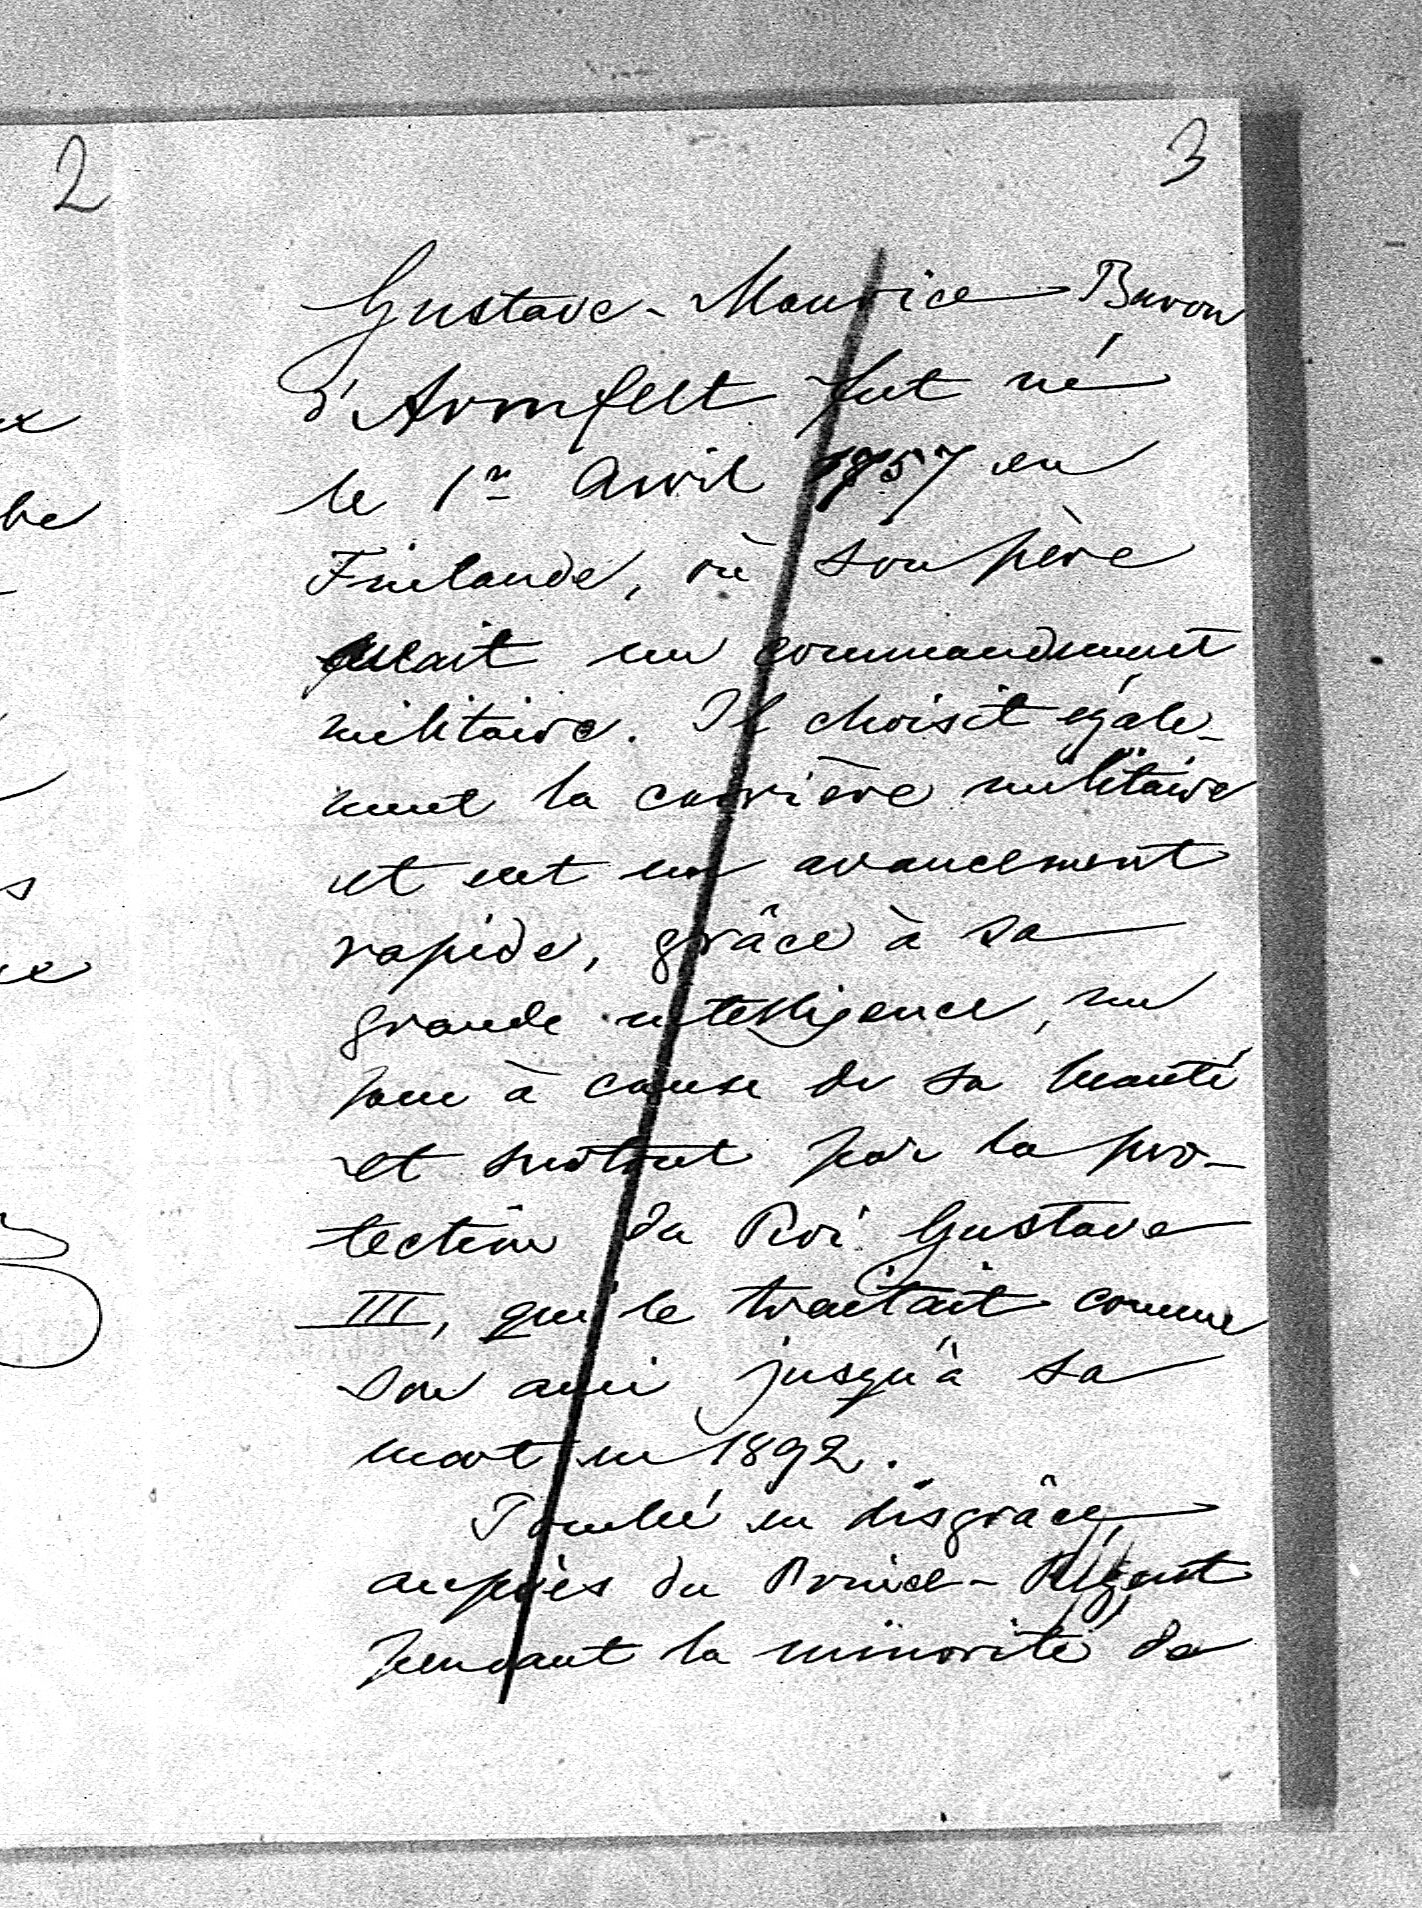 2
3
Gustave-Maurice Baron
d'Armfelt fut né
le 1er Avril 1857 en
Finlande, où son père
avait un commandement
militaire. Il choisit égale-
ment la carrière militaire
et eut un avancement
rapide, grâce à sa
grande intelligence, un
peu à cause de sa beauté
et surtout par la pro-
tection du Roi Gustave
III, qui le traitait comme
son ami jusqu'à sa
mort en 1892.
Tombé en disgrâce
auprès du Prince-Régent
pendant la minorité de